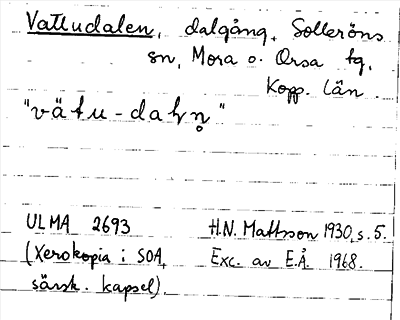 Vattudalen, dalgång, Solleröns
sn, Mora o. Orsa tg,
Kopp. län.
"vätu-daln̥"
ULMA 2693 H.N. Mattsson 1930, s. 5.
(Xerokopia i SOA, Exc. av E.Å. 1968.
särsk. kapsel)